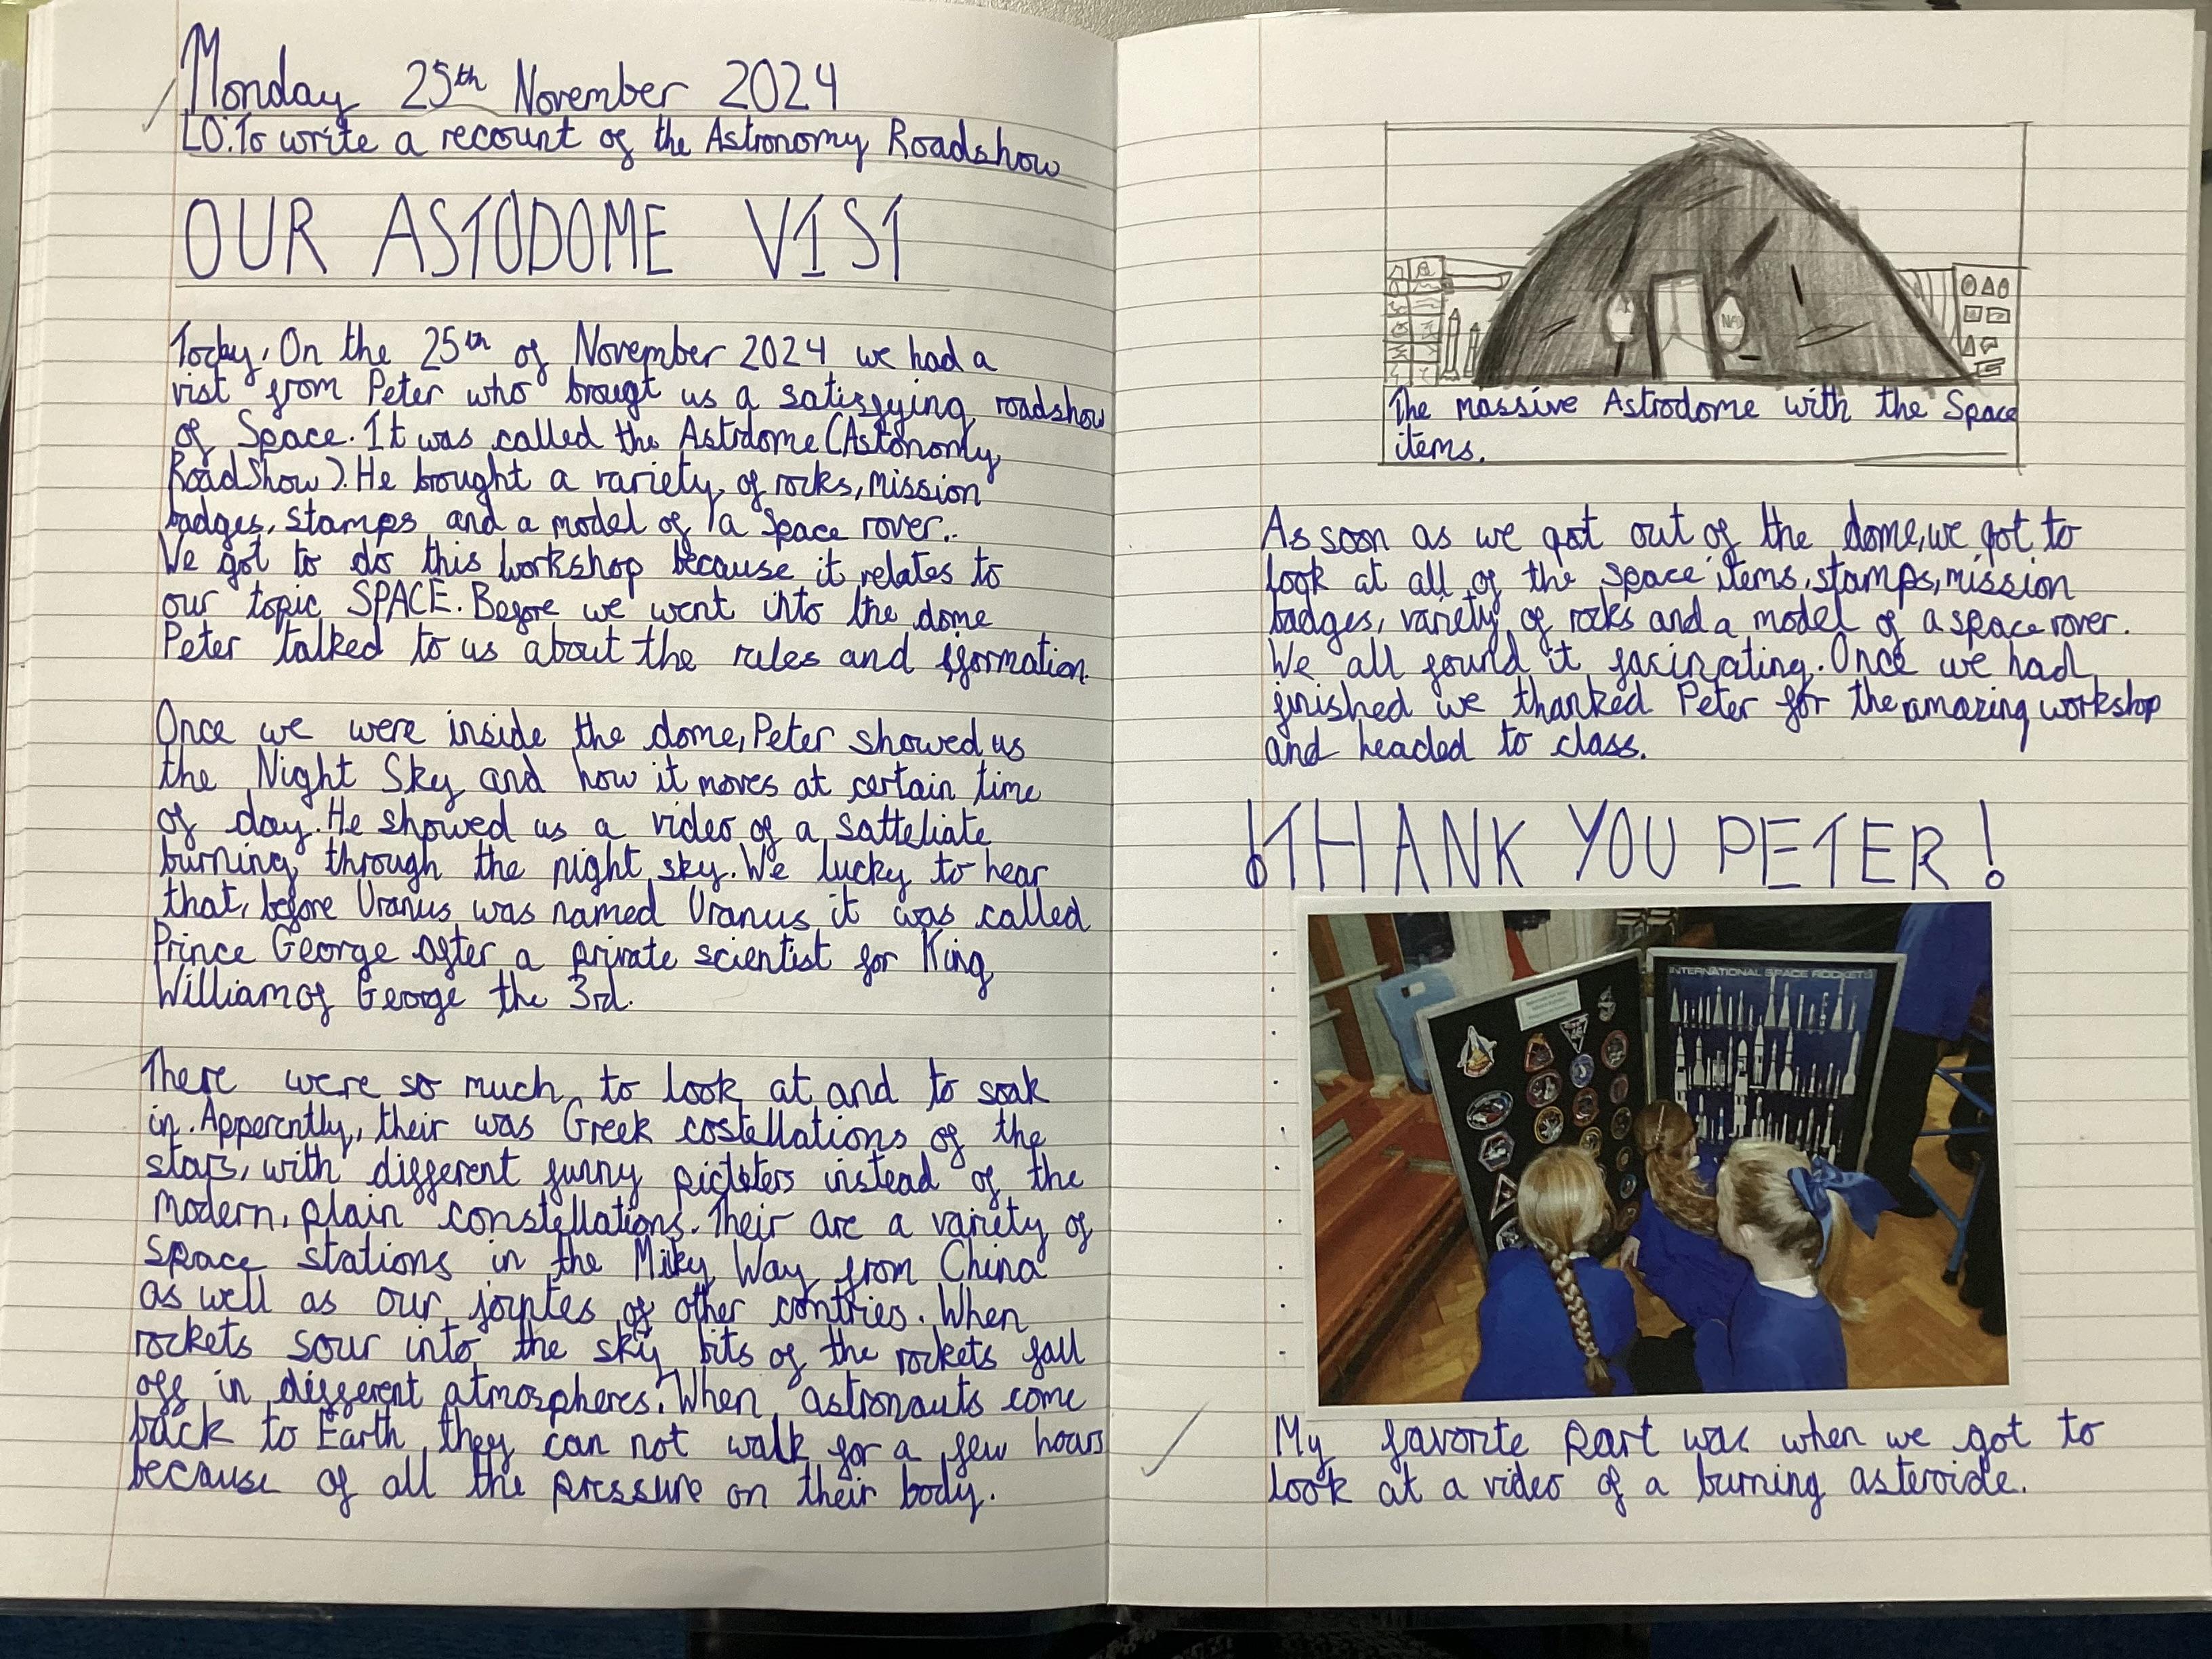 Monday 25th November 2024
LO: To write a recount of the Astronomy Roadshow
OUR ASTODOME VIST
Today, On the 25th of November 2024 we had a
vist from Peter who brougt us a satisfying roadshow
of Space. It was called the Astrdome (Astonomy
RoadShow). He brought a variety of rocks, mission
badges, stamps and a model of a space rover..
We got to do this workshop because it relates to
our topic SPACE. Before we went into the dome
Peter talked to us about the rules and
Once we were inside the dome, Peter showed us
the Night Sky and how it moves at certain time
of day. He showed us a video of a satteliate
burning through the night sky. We lucky to hear
that, before Uranus was named Uranus it was called
Prince George after a private scientist for King
William of George the 3rd.
There were so much to look at and to soak
in. Apperently, their was Greek costellations of the
stars, with different funny instead of the
modern, plain constellations. Their are a variety of
space stations in the Milky Way from China
as well as our of other contries. When
rockets sour into the sky bits of the rockets fall
off in different atmospheres. When astronauts come
back to Earth, they can not walk for a few hours
because of all the pressure on their body.
The massive Astrodome with the Space
items.
As soon as we got out of the dome, we got to
look at all of the space items, stamps, mission
badges, variety of rocks and a model of a space rover.
We all found it fascinating. Once we had
finished we thanked Peter for the amazing workshop
and headed to class.
!THANK YOU PETER!
INTERNATIONAL SPACE ROCKETS
My favorite part was when we got to
look at a video of a burning asteroide.